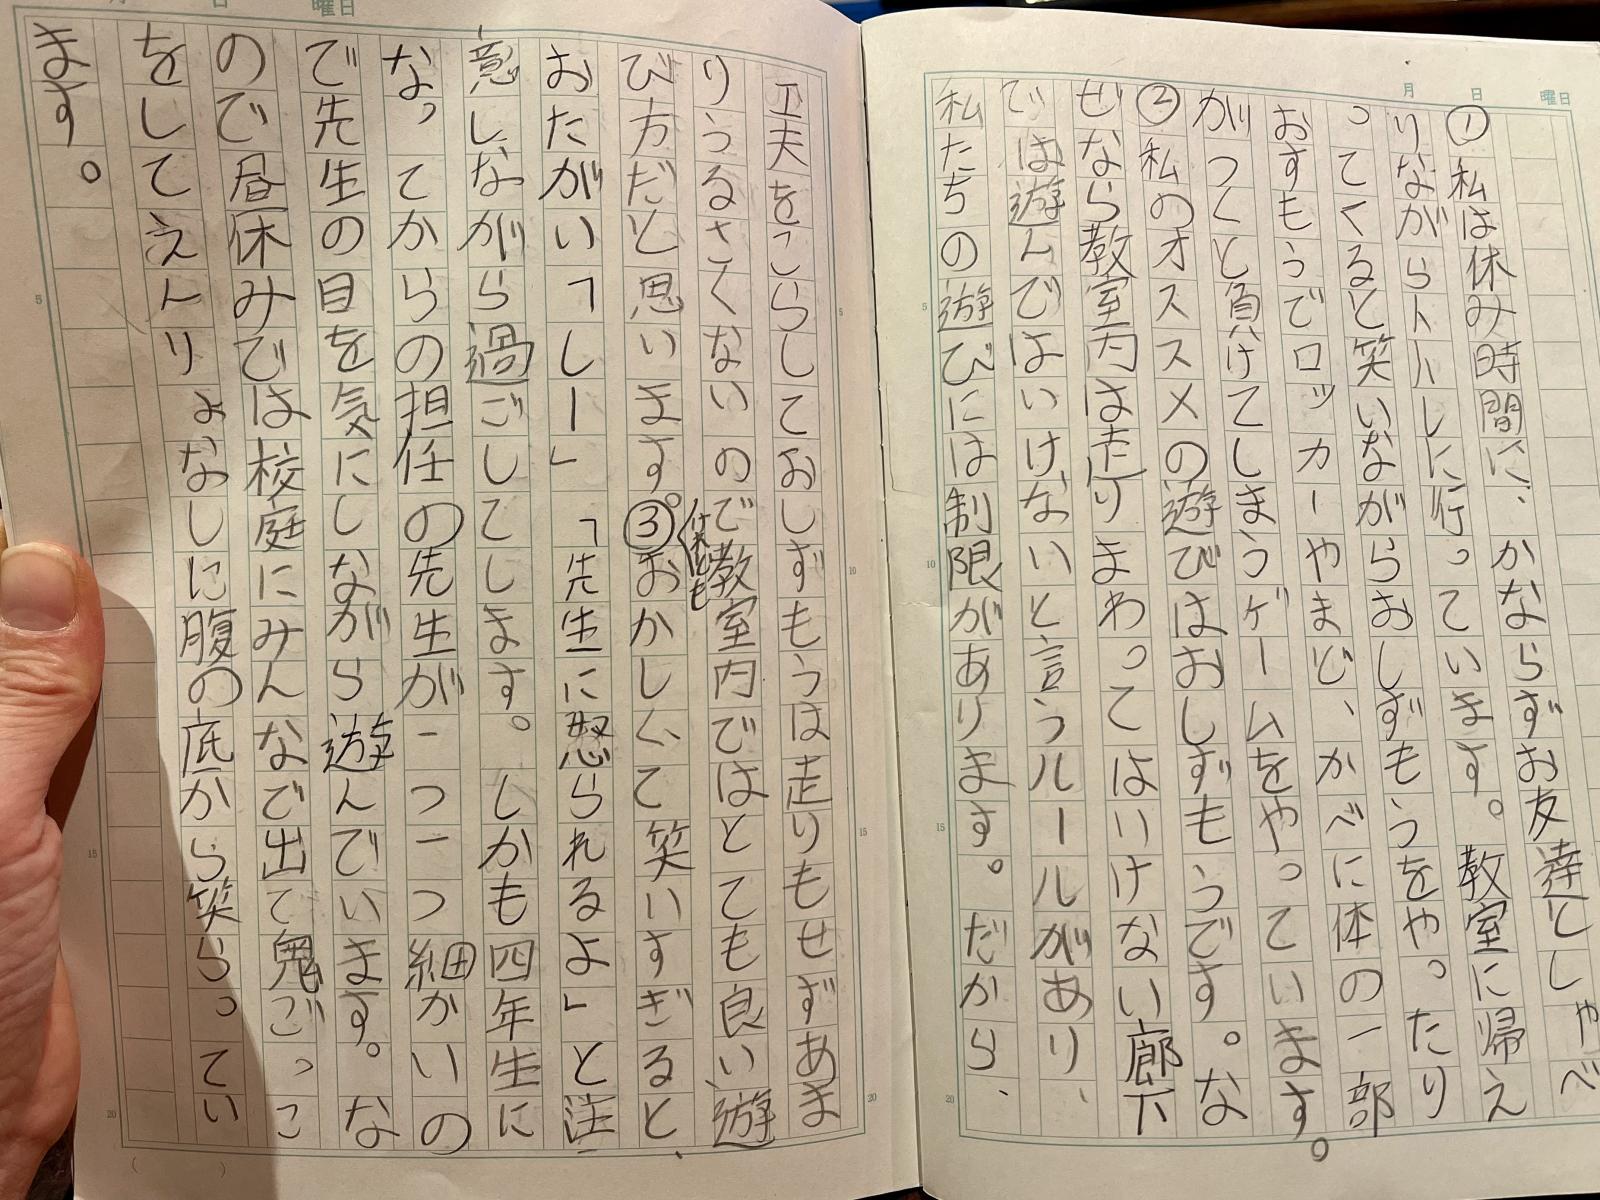 月 日 曜日
①私は休み時間に、かならずお友達としゃべ
りながらトイレに行っています。教室に帰え
ってくると笑いながらおしずもうをやったり
おすもうでロッカーやまど、かべに体の一部
がつくと負けてしまうゲームをやっています。
②私のオススメの遊びはおしずもうです。な
ぜなら教室内は走りまわってはいけない廊下
では遊んではいけないと言うルールがあり、
私たちの遊びには制限があります。だから、
月 日 曜日
工夫をこらしておしずもうは走りもせずあま
りうるさくないので教室内ではとても良い遊
び方だと思います。③けれどもおかしくて笑いすぎると、
おたがい「しー」「先生に怒られるよ」と注
意しながら過ごしてします。しかも四年生に
なってからの担任の先生が一つ一つ細かいの
で先生の目を気にしながら遊んでいます。な
ので昼休みでは校庭にみんなで出て鬼ごっこ
をしてえんりょなしに腹の底から笑らってい
ます。
5
10
15
20
5
10
15
20
5
15
20